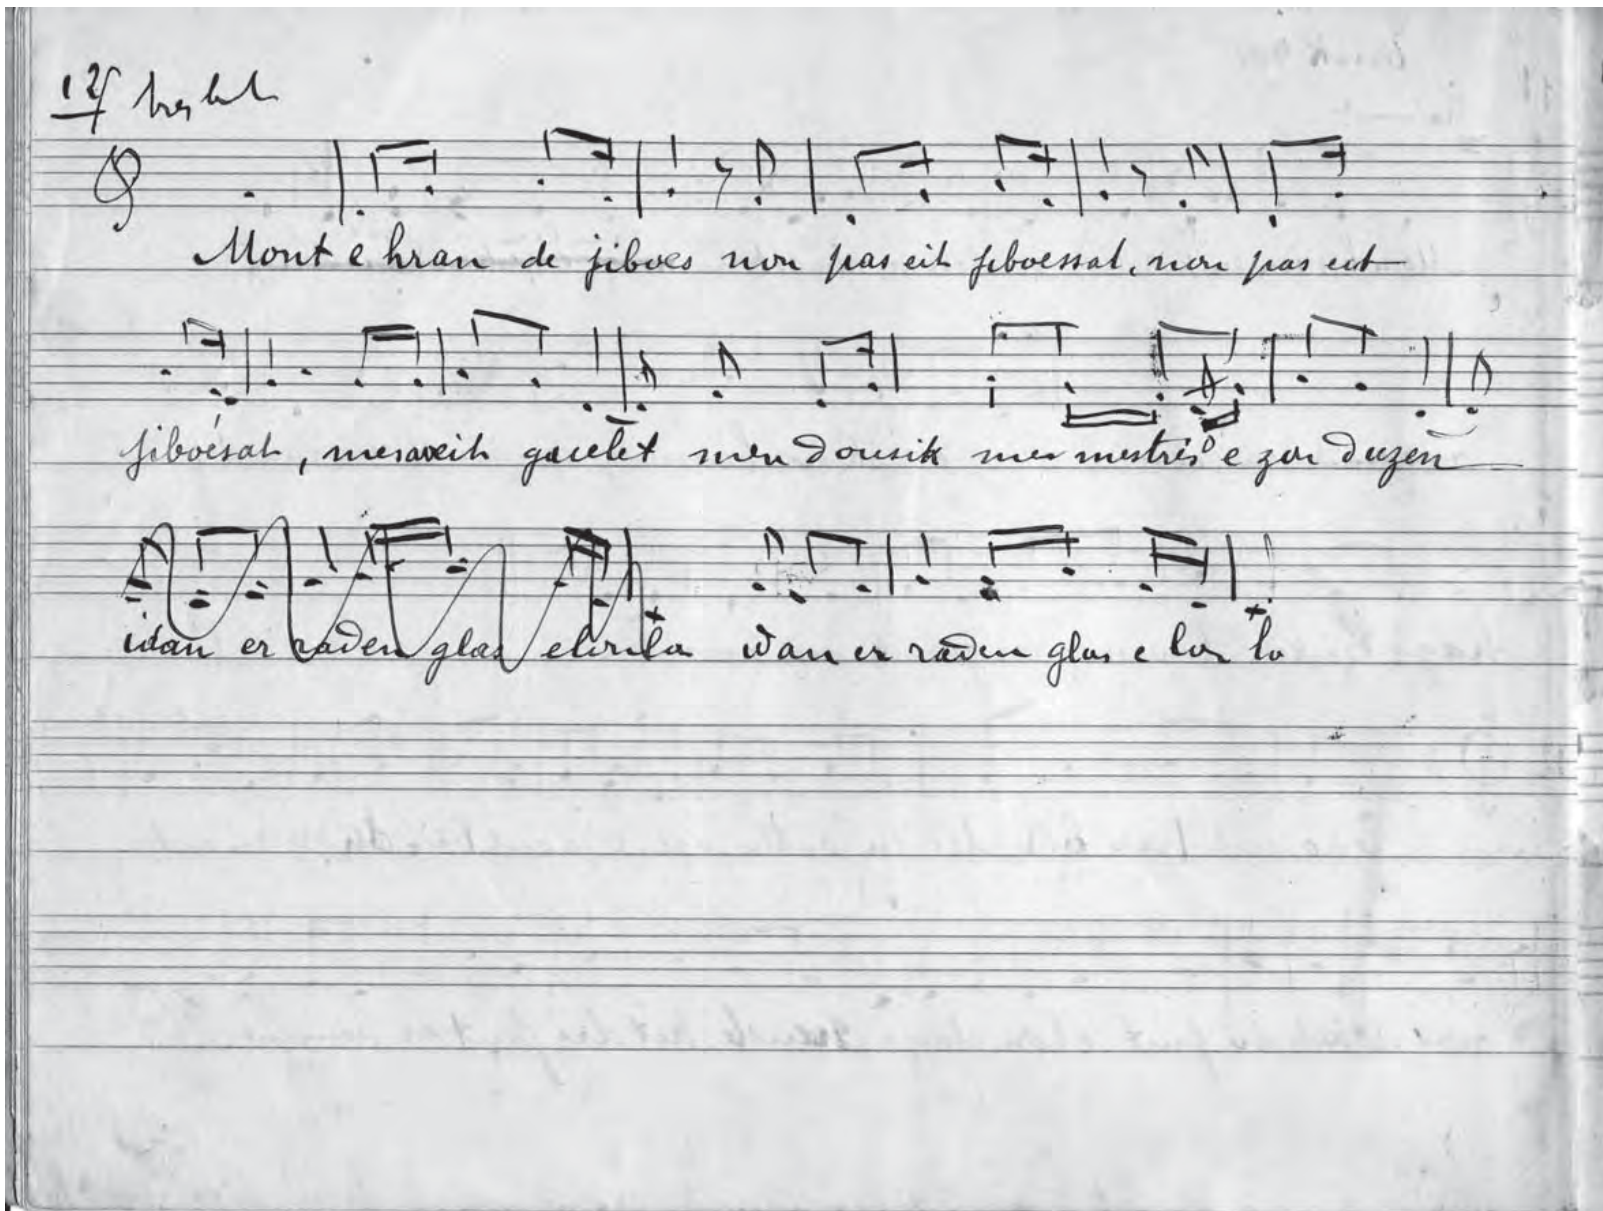 12/
Mont e hran de jiboes non pas eit jiboessat, non pas eit
jiboésat, mes aveit guelet men dousik mes mestrés e zou duzen
idan er raden glas
idan er raden glas e lon la